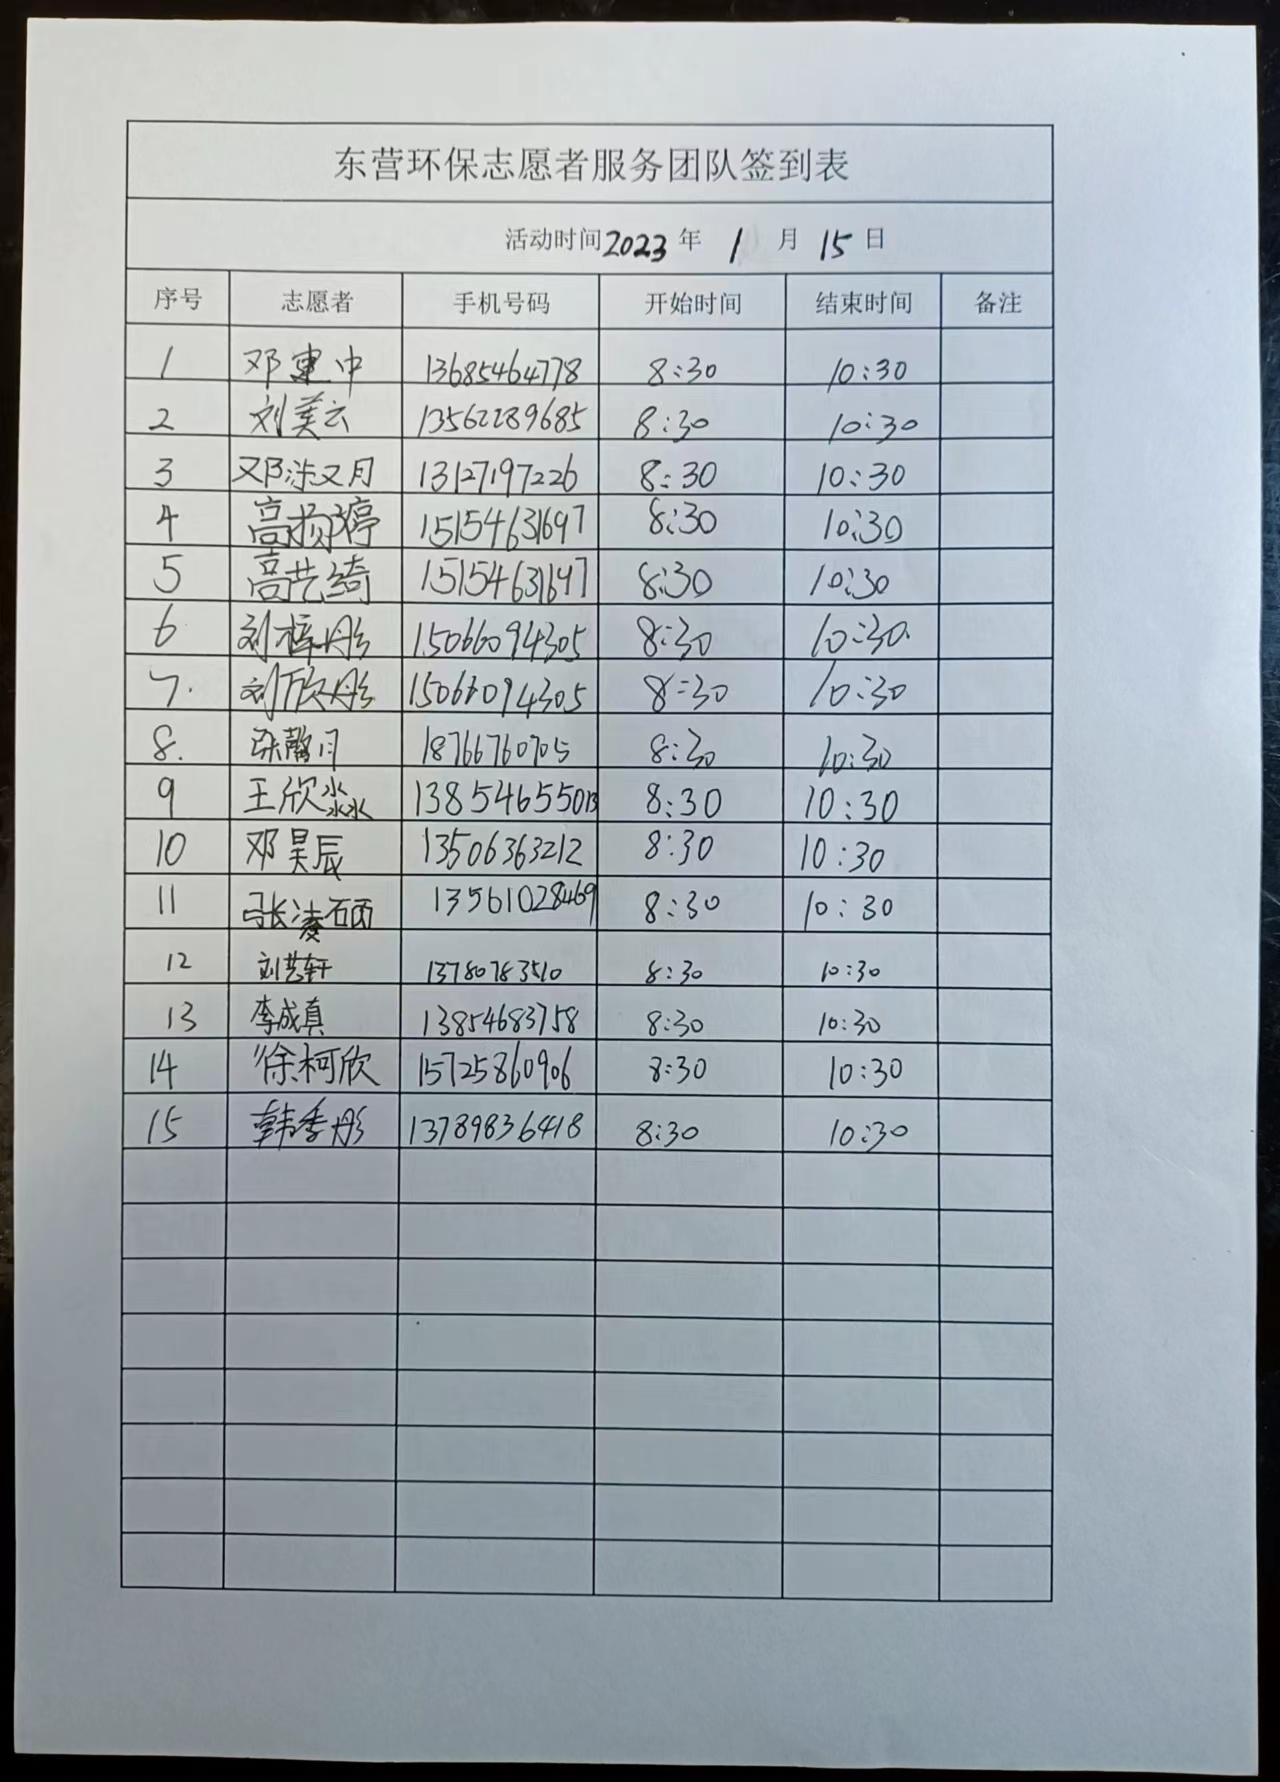 东营环保志愿者服务团队签到表
活动时间2023 年 1 月 15 日
序号 志愿者 手机号码 开始时间 结束时间 备注
1 邓建中 13685464778 8:30 10:30
2 刘美云 13562289685 8:30 10:30
3 邓洙又月 13127197226 8:30 10:30
4 高 婷 15154631697 8:30 10:30
5 高艺绮 15154631697 8:30 10:30
6 刘梓彤 15066094305 8:30 10:30.
7. 刘欣彤 15066094305 8:30 10:30
8. 张馨月 18766760705 8:30 10:30
9 王欣淼 13854655013 8:30 10:30
10 邓昊辰 13506363212 8:30 10:30
11 张凌 13561028469 8:30 10:30
12 刘艺轩 13780783510 8:30 10:30
13 李成真 13854683758 8:30 10:30
14 徐柯欣 15725860906 8:30 10:30
15 韩季彤 13789836418 8:30 10:30